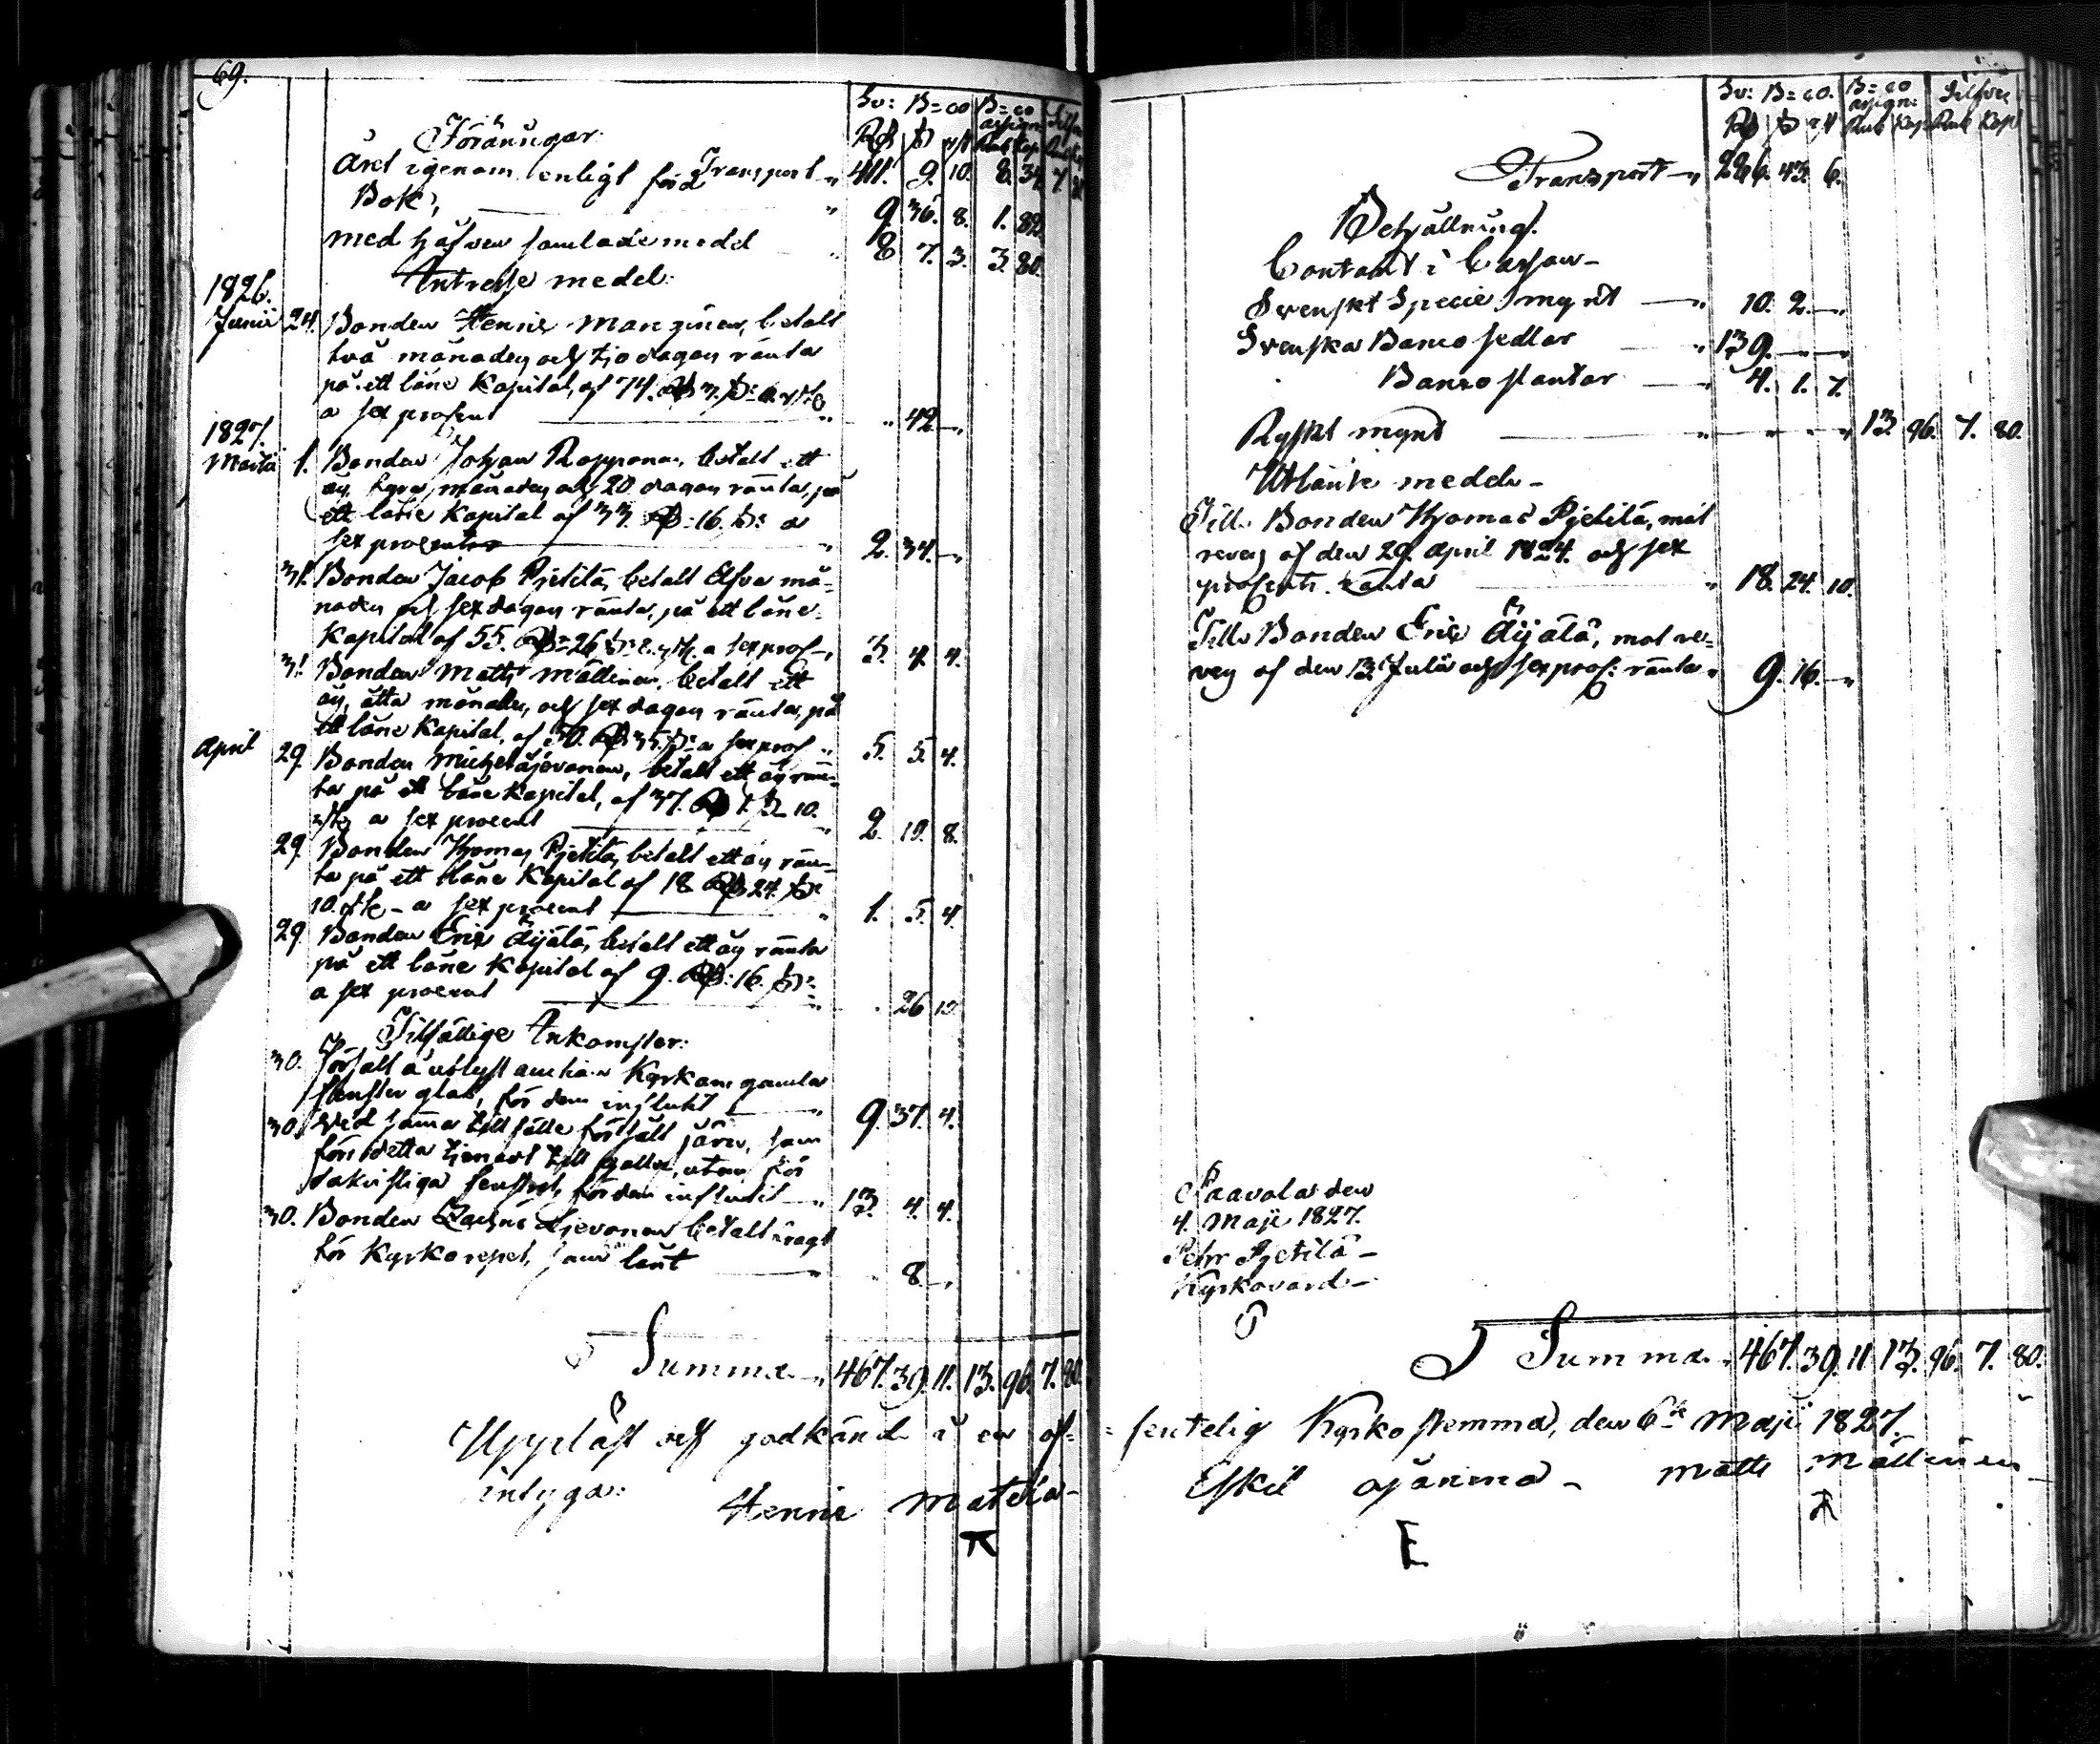 69.
Sv: B=co B=co Silfver
assign:
Rd ß rst Rub Kop Rub Kop
Föräningar:
Transport „ 411. 9. 10. 8. 34. 7. 80.
Året igenom enligt förd
Bok, „ 9. 36. 8. 1. 82.
med håfven samlade medel „ 8 7. 3. 3. 80.
Intresse medel:
1826.
Junii 24. Bonden Henric Manginen, betalt
två månader och tjo dagars ränta
på ett låne Kapital, af 74. Rd 7. ß: 6 rst
a sex prosent „ 42 „
1827.
Martii 1. Bonden Johan Rapponen, betalt ett
års, fyra månaders och 20 dagars ränta, på
ett låne Kapital af 33 Rd: 16. ß: a
sex procent „ 2. 34. „
31. Bonden Jacob Pjetilä, betalt Elfva må-
naders och sex dagars ränta, på ett låne
Kapital af 55. Rd: 26 ß: 8. rst. a sex pros „ 3. 4. 4.
31. Bonden Matts Mattinen, betalt ett
års, åtta månaders, och sex dagars ränta, på
ett låne Kapital, af 50. Rd 35. ß: a sex pros „ 5. 5. 4.
April 29. Bonden Michel Äjevonen, betalt ett års rän-
ta på ett låne Kapital, af 37. Rd 1. ß 10.
rst a sex procent 2. 10. 8.
29. Bonden Thomas Pjetilä, betalt ett års rän-
ta på ett låne Kapital af 18 Rd 24. ß:
10. rst - a sex procent „ 1. 5. 4.
29. Bonden Eric Äijälä, betalt ett års ränta
på ett låne Kapital af 9. Rd: 16. ß:
a sex procent „ 26 10.
Tilfällige Inkomster:
30. Försålt å utlyst auction Kyrkans gamla
fenster glas, för dem influtit „ 9. 37. 4.
30. Vid samma tillfälle försålt järn, som
för detta tjenart till galler, utan för
sakristiga fenstret, för dem influtit „ 13. 4. 4.
30. Bonden Äjevonen betalt
för Kyrko repet, som lånt „ 8. „
Summa „ 467. 39. 11. 13. 96. 7. 80.
Uppläst och godkänd i en of=
intyga:
Henric Matela
Sv: B=co. B=co Silfver
assign:
Rd ß rst Rub Kop Rub Kop
Transport „ 286. 43. 6.
Behållning.
Contant i Cassan
Svenskt Specie mynt „ 10. 2. „
Svenska Banco sedlar „ 139. „ „
Banco slantar „ 4. 1. 7.
Ryskt mynt „ „ „ „ 13. 96. 7. 80.
Utlånte medel
Till Bonden Thomas Pjetilä, mot
revers af den 29. April 1824. och sex
prosents ränta „ 18. 24. 10.
Till Bonden Eric Äijälä, mot re-
vers af den 13. Julii och sex pros: ränta „ 9. 16. „
Paavola den
4. Maji 1827.
Pehr Pjetilä
Kyrkovärd
Summa „ 467. 39. 11. 13. 96. 7. 80.
=fentelig Kyrkostemma, den 6te Maji 1827.
Eskil Ojanma - Matts Mattinen
E